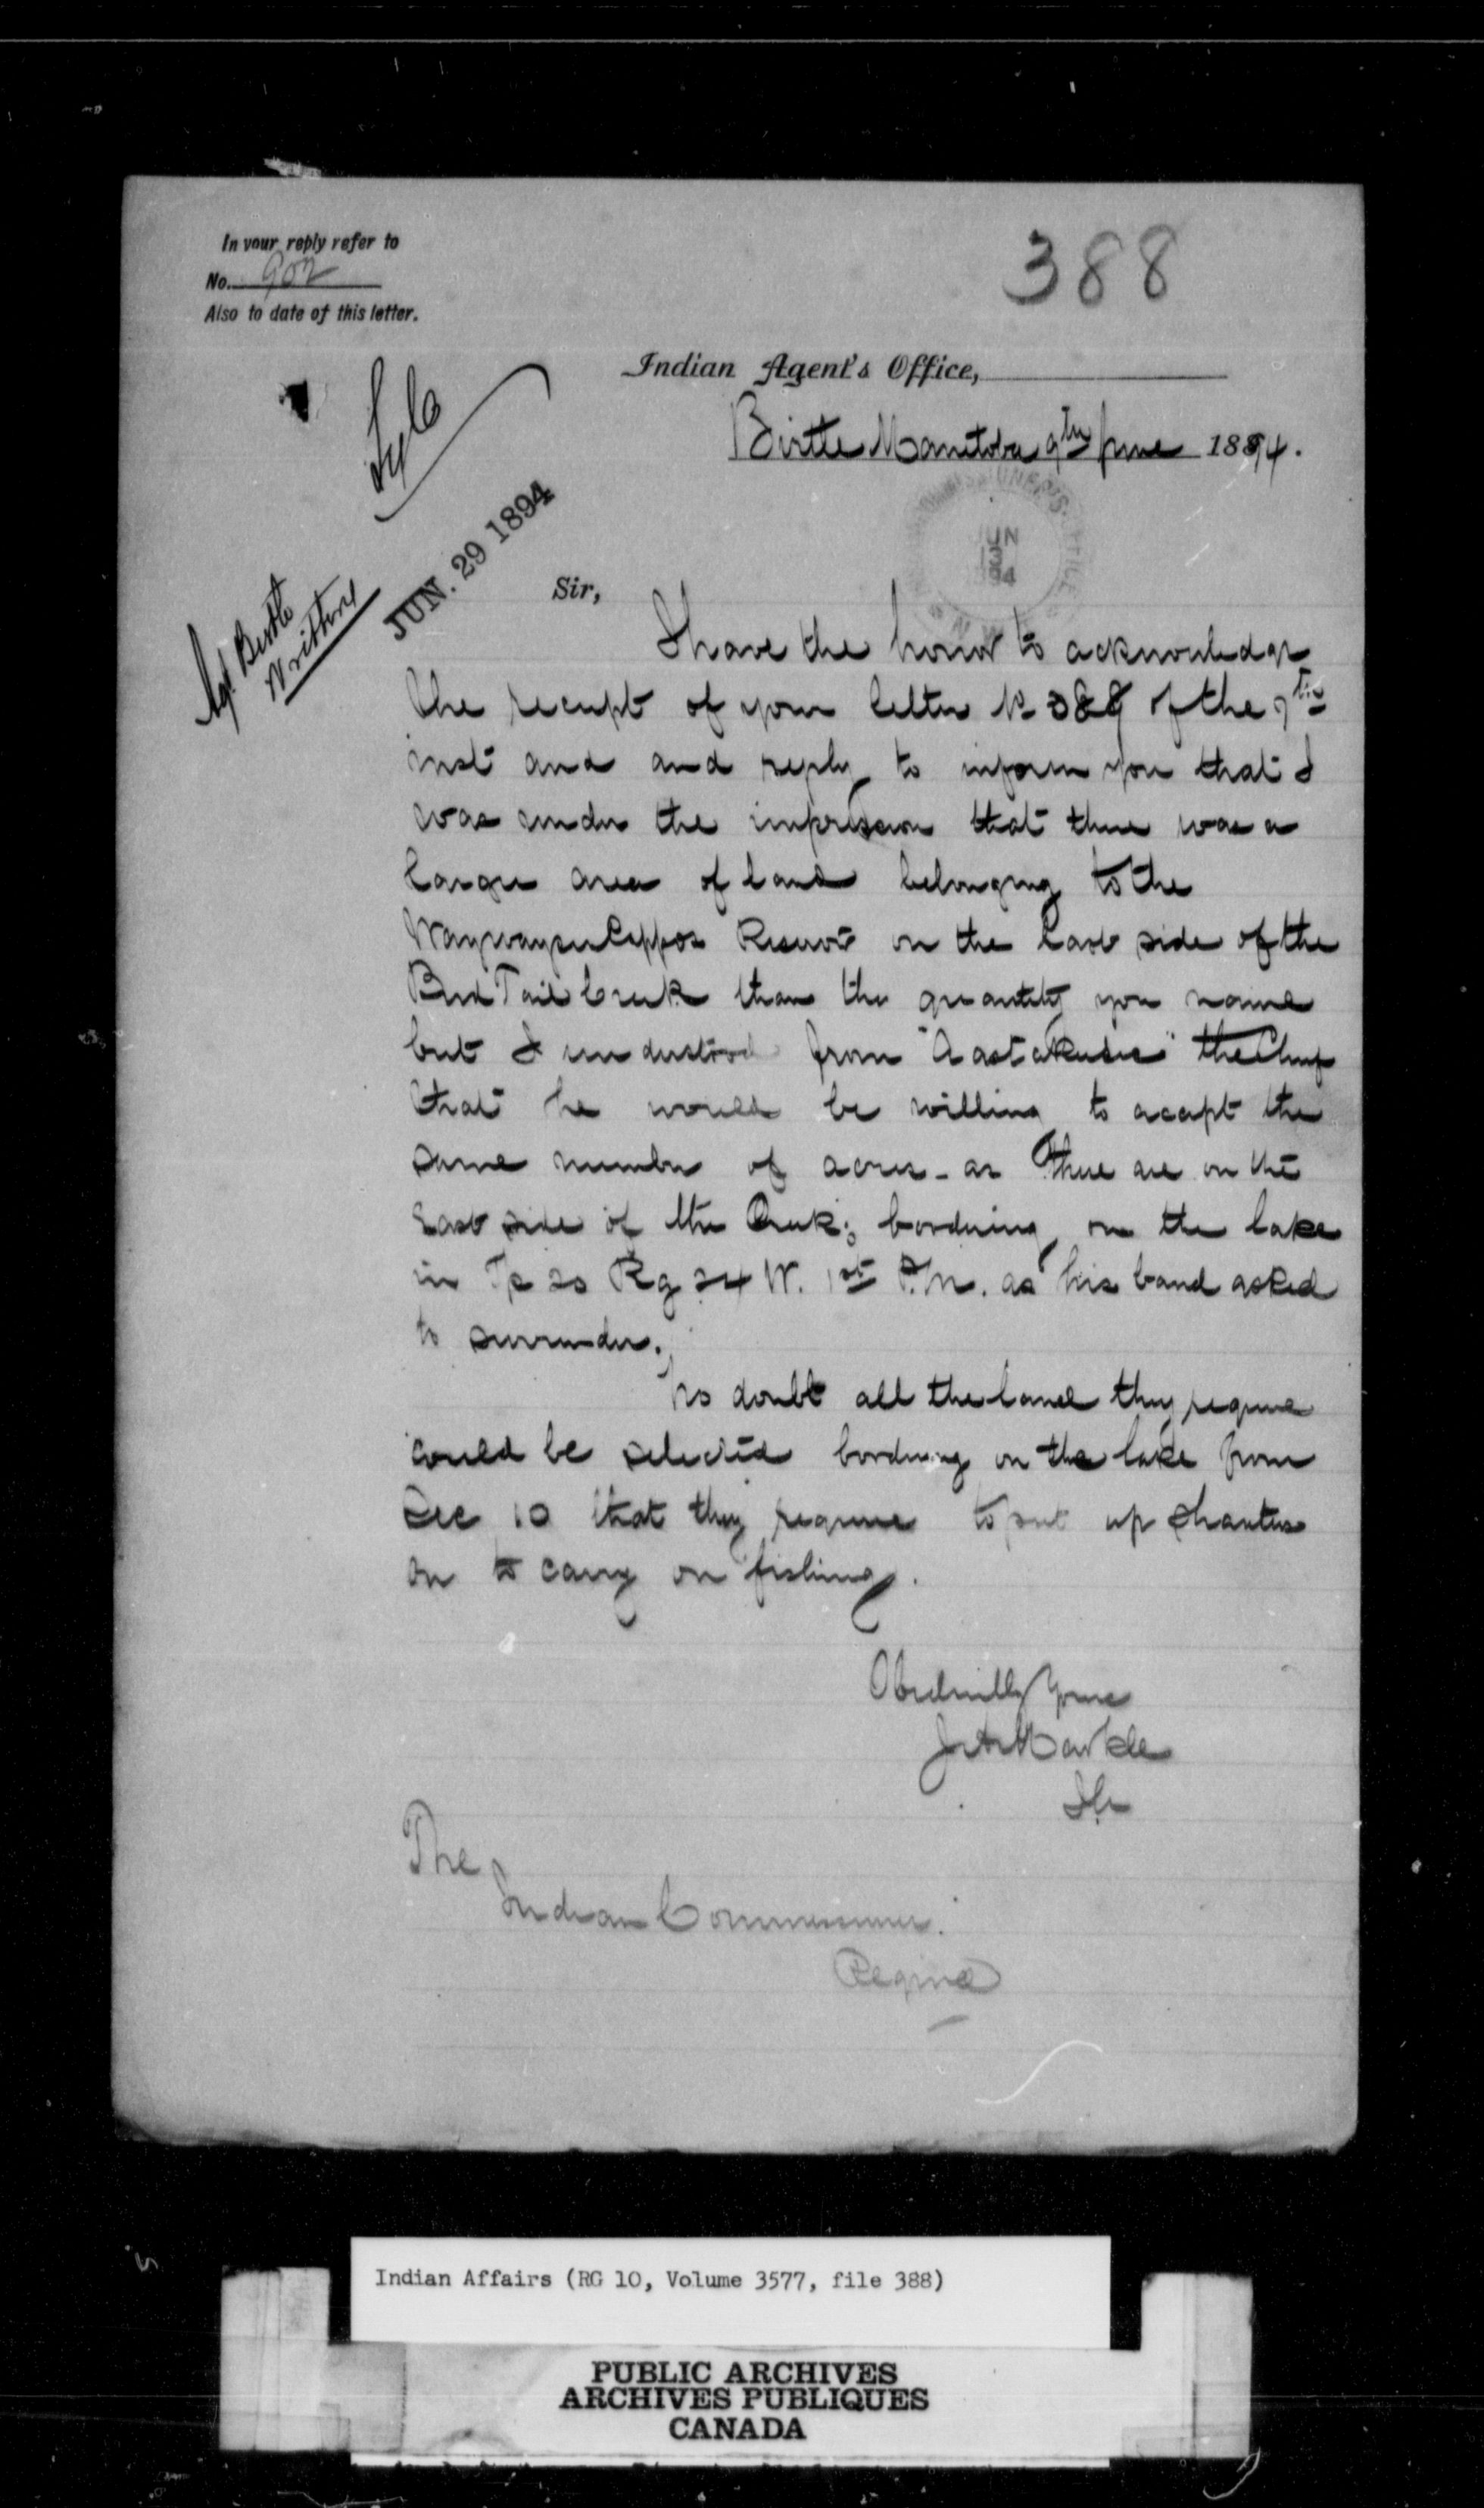 In your reply refer to
No. 902
Also to date of this letter.
388
Indian Agent's Office,
Birtle Manitoba 9th June 1894.
JUN. 29 1894
Agt. Birtle
Written
JUN
13
94
Sir,
I have the honor to acknowledge
the receipt of your letter No 388 of the 7th
inst and and reply to inform you that I
was under the impression that there was a
larger area of land belonging to the
Waywayseecappos Reserve on the East side of the
Bird Tail Creek than the quantity you name
but I understood from "Aastakusic" the Chief
that he would be willing to accept the
same number of acres - as there are on the
East side of the Creek; bordering on the lake
in Tp 20 Rg 24 W. 1st P.M. as his band asked
to surrender.
No doubt all the land they require
could be selected bordering on the lake from
Sec 10 that they require to put up shanties
on to carry on fishing.
Obediently Yours
J A Markle
The
Indian Commissioner.
Regina
Indian Affairs (RG 10, Volume 3577, file 388)
PUBLIC ARCHIVES
ARCHIVES PUBLIQUES
CANADA